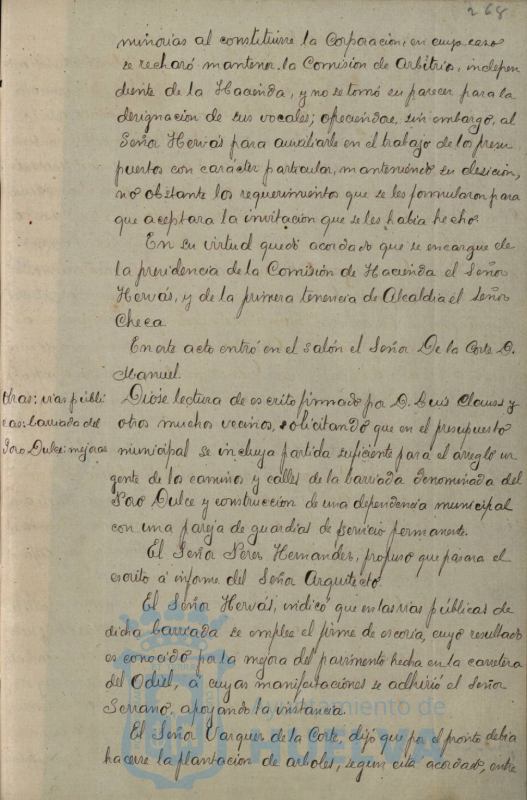 268
minorias al constituirse la Corporacion, en cuyo caso
se rechazó mantener la Comision de Arbitrio, indepen
diente de la Hacienda, y no se tomó su parecer para la
designacion de sus vocales; ofreciendose, sin embargo, al
Señor Hervás para auxiliarle en el trabajo de los presu
puestos con carácter particular, manteniendo su desición,
no obstante los requerimientos que se les formularon para
que aceptara la invitacion que se les habia hecho.
En su virtud quedó acordado que se encargue de
la presidencia de la Comisión de Hacienda el Señor
Hervás, y de la primera tenencia de Alcaldia el Señor
Checa.
En este acto entró en el salón el Señor De la Corte D.
Manuel.
Obras: vias públi
cas: barriada del
Poro Dulce: mejoras
Dióse lectura de escrito firmado por D. Luis Clauss y
otros muchos vecinos, solicitando que en el presupuesto
municipal se incluya partida suficiente para el arreglo ur
gente de los caminos y calles de la barriada denominada del
Poro Dulce y construccion de una dependencia municipal
con una pareja de guardias de servicio permanente.
El Señor Perez Hernandez, propuso que pasara el
escrito á informe del Señor Arquitecto.
El Señor Hervás, indicó que en las vias públicas de
dicha barriada se emplee el firme de escoria, cuyo resultado
es conocido por la mejora del pavimento hecha en la carretera
del Odiel, á cuyas manifestaciones se adhirió el Señor
Serrano, apoyando la instancia.
El Señor Vazquez de la Corte, dijó que por el pronto debia
hacerse la plantacion de arboles, segun está acordado, entre
Ayuntamiento de
HUELVA